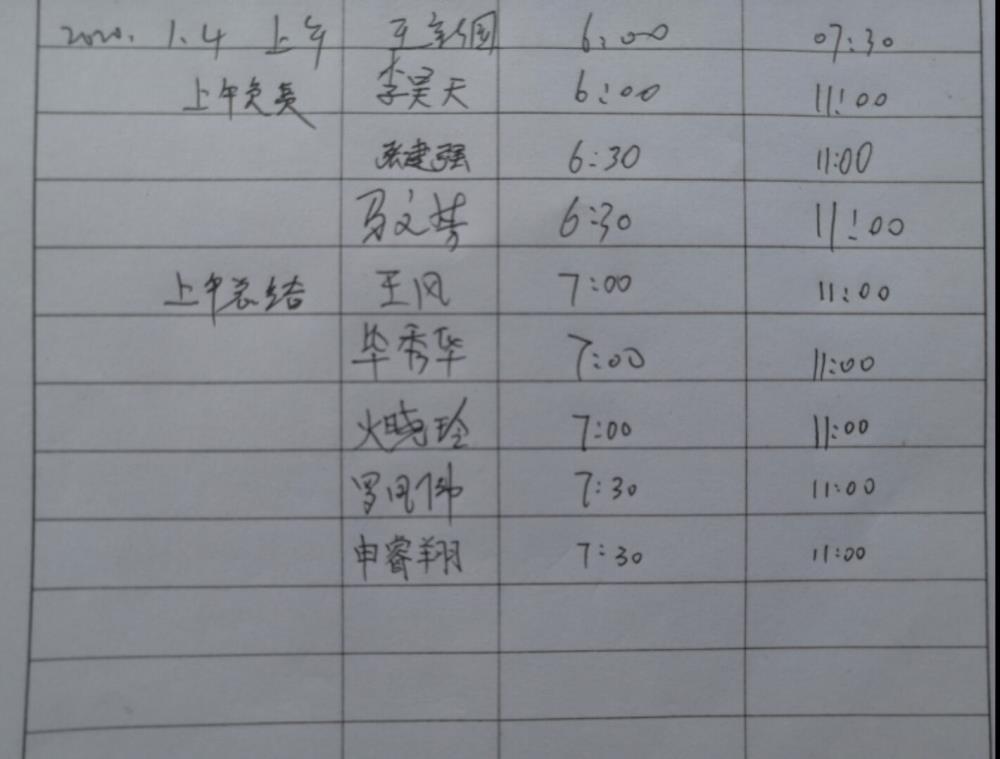 2020. 1.4 上午 王新国 6:00 07:30
上午负责 李昊天 6:00 11:00
张建强 6:30 11:00
马文芳 6:30 11:00
上午总结 王凤 7:00 11:00
毕秀华 7:00 11:00
火晓玲 7:00 11:00
罗凤伟 7:30 11:00
申睿翔 7:30 11:00